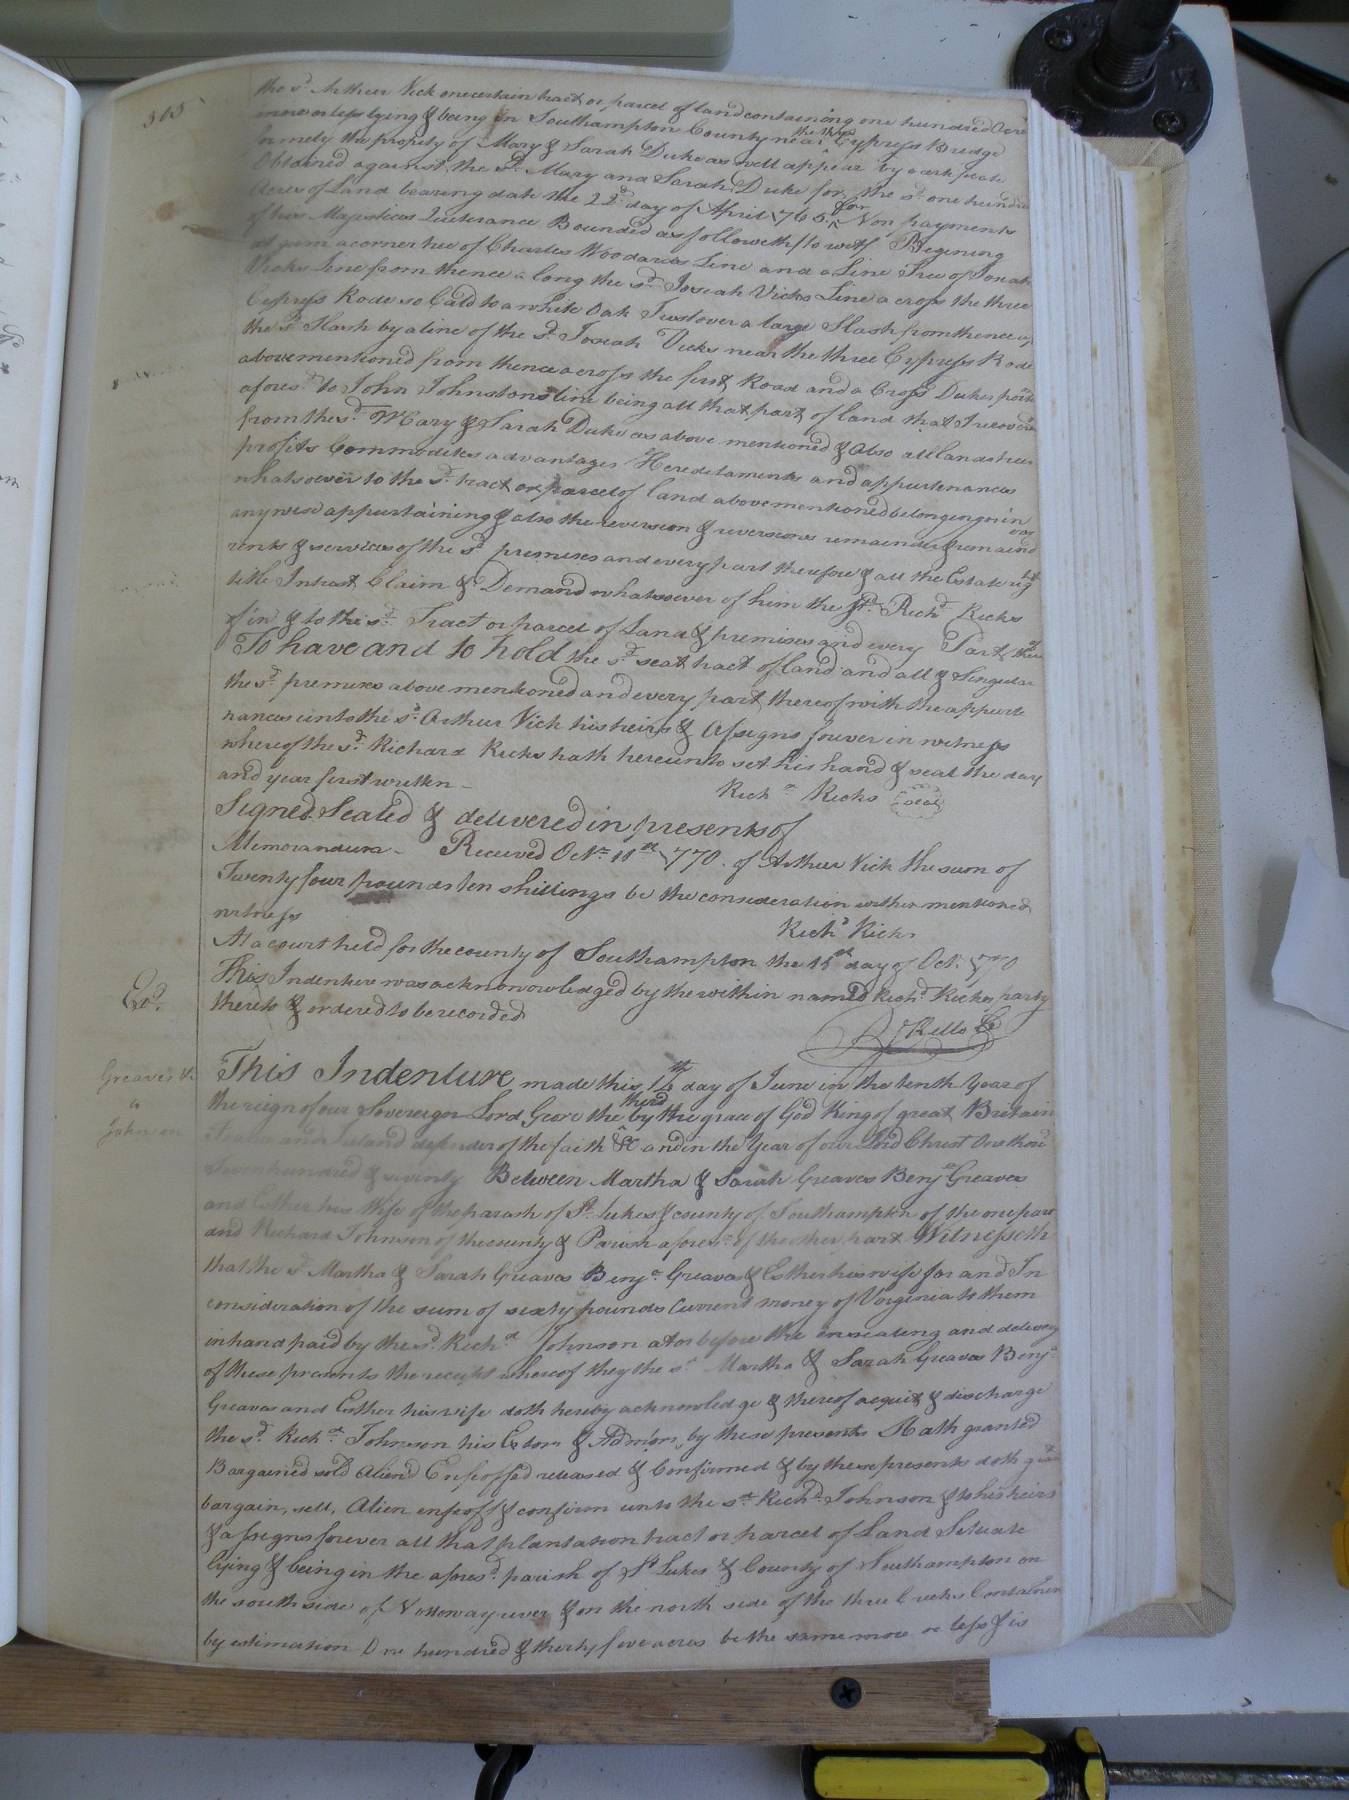 the sd. Arthur Vick one certain tract or parcel of land containing one hundred Acre
more or less lying & being in Southampton County near the three Cypress Bridge
formely the propety of Mary & Sarah Duke as well appear by a
Obtained against the sd. Mary and Sarah Duke for the sd. one hundred
Acres of Land bearing date the 22d. day of April 1765 for Non payments
of his Majesties Quiterance Bounded as followeth (to wit) Begining
at gum a corner tree of Charles Woodards Line and a Line Tree of Josiah
Vicks Line from thence along the sd. Josiah Vicks Line a cross the three
Cypress Rode so Cald to a white Oak Just over a large Slash from thence up
the sd. Slash by a line of the sd. Josiah Vicks near the three Cypress Rode
above mentioned from thence across the first Road and a Cross Dukes
afores.d to John Johnstons line being all that part of land that I recovered
from the sd. Mary & Sarah Duke as above mentioned & Also all lands trees
profits Commodites advantages Heredetaments and appurtenances
whatsoever to the sd. tract or parcel of land above mentioned belonging or in
any wise appurtaining & also the reversion & reversions remainder & remaind
rents & services of the sd. premises and every part therefore & all the Estate rig
title Intrest Claim & Demand whatsoever of him the sd. Richd Ricks
of in & to the sd. Tract or parcel of Land & premises and every Part there
To have and to hold the sd. seat tract of land and all & Singular
the sd. premises above mentioned and every part thereof with the appurte
nances unto the sd. Arthur Vick his heirs & Assigns forever in witness
whereof the sd. Richard Ricks hath hereunto set his hand & seal the day
and year first writen -
Richd Ricks seal
Signed Sealed & delivered in presents of
Memorandum - Received Octr. 11th 1770. of Arthur Vick the sum of
Twenty four pounds ten shillings be the consideration within mentioned
witness
Richd Ricks
At a court held for the county of Southampton the 11th day of Oct. 1770
This Indenture was acknonowledged by the within named Richd Ricks party
thereto & ordered to be recorded
Rd. Kello C
Greaves &c
to
Johnson
This Indenture made this 12th day of June in the tenth Year of
the reign of our Sovereign Lord Geore the third by the grace of God King of great Britain
France and Ireland defender of the faith &c and in the Year of our Lord Christ One thou
Seven hundred & seventy Between Martha & Sarah Greaves Benjn Greaves
and Esther his Wife of the parash of St. Lukes & county of Southampton of the one part
and Richard Johnson of the county & Parish afores.d of the other part Witnesseth
that the sd. Martha & Sarah Greaves Benjn. Greaves & Esther his wife for and In
consideration of the sum of sixty pounds Current money of Virginia to them
in hand paid by the sd. Richd Johnson at or before the ensealing and delivery
of these presents the receipt whereof they the sd. Martha & Sarah Greaves Benjn.
Greaves and Esther his wife doth hereby acknowledge & thereof acquit & discharge
the sd. Richd. Johnson his Extors & Admiors, by these presents Hath granted
Bargained sold Aliend Enfeoffed released & Confirmed & by these presents doth
bargain, sell, Alien enfeoff & confirm unto the sd. Richd. Johnson & to his heirs
& assigns forever all that plantation tract or parcel of Land Setuate
lying & being in the afores.d parish of St. Lukes & County of Southampton on
the south side of Nottoway river & on the north side of the three Creeks
by estimation One hundred & thirty five acres be the same more or less & is